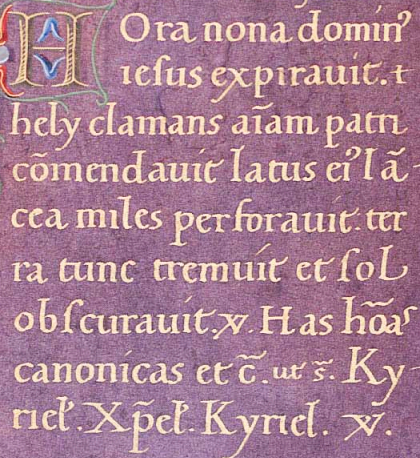 Hora nona domin⁹
iesus expirauit. &
hely clamans aīam patri
cōmendauit latus ei⁹ lā-
cea miles perforauit: ter
ra tunc tremuit et sol
obſcurauit. ℣. Has hōas
canonicas et c̄. ut s̄. Ky-
riel̄. Xp̄el̄. Kyriel. ℣.